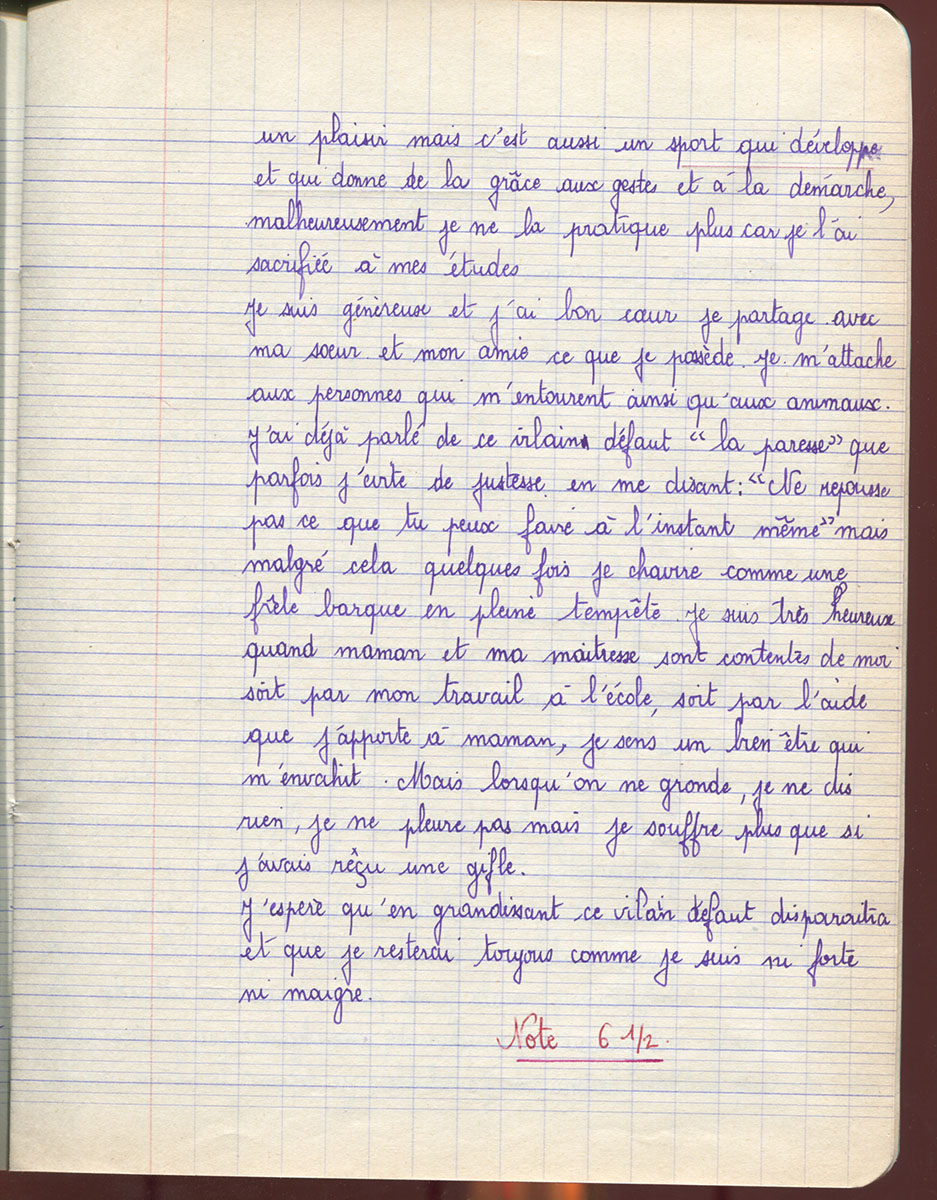 un plaisir mais c'est aussi un sport qui développe
et qui donne de la grâce aux gestes et à la demarche,
malheureusement je ne la pratique plus car je l'ai
sacrifiée à mes études
Je suis généreuse et j'ai bon cœur je partage avec
ma soeur et mon amie ce que je possède. Je m'attache
aux personnes qui m'entourent ainsi qu'aux animaux.
J'ai déjà parlé de ce vilain défaut "la paresse" que
parfois j'évite de justesse en me disant: "Ne repousse
pas ce que tu peux faire à l'instant même" mais
malgré cela quelques fois je chavire comme une
frêle barque en pleine tempête. Je suis très heureux
quand maman et ma maitresse sont contentes de moi
soit par mon travail à l'école, soit par l'aide
que j'apporte à maman, je sens un bien être qui
m'envahit. Mais lorsqu'on me gronde, je ne dis
rien, je ne pleure pas mais je souffre plus que si
j'avais réçu une gifle.
J'espere qu'en grandissant ce vilain defaut disparaitra
et que je resterai toujous comme je suis ni forte
ni maigre.
Note 6 1/2.